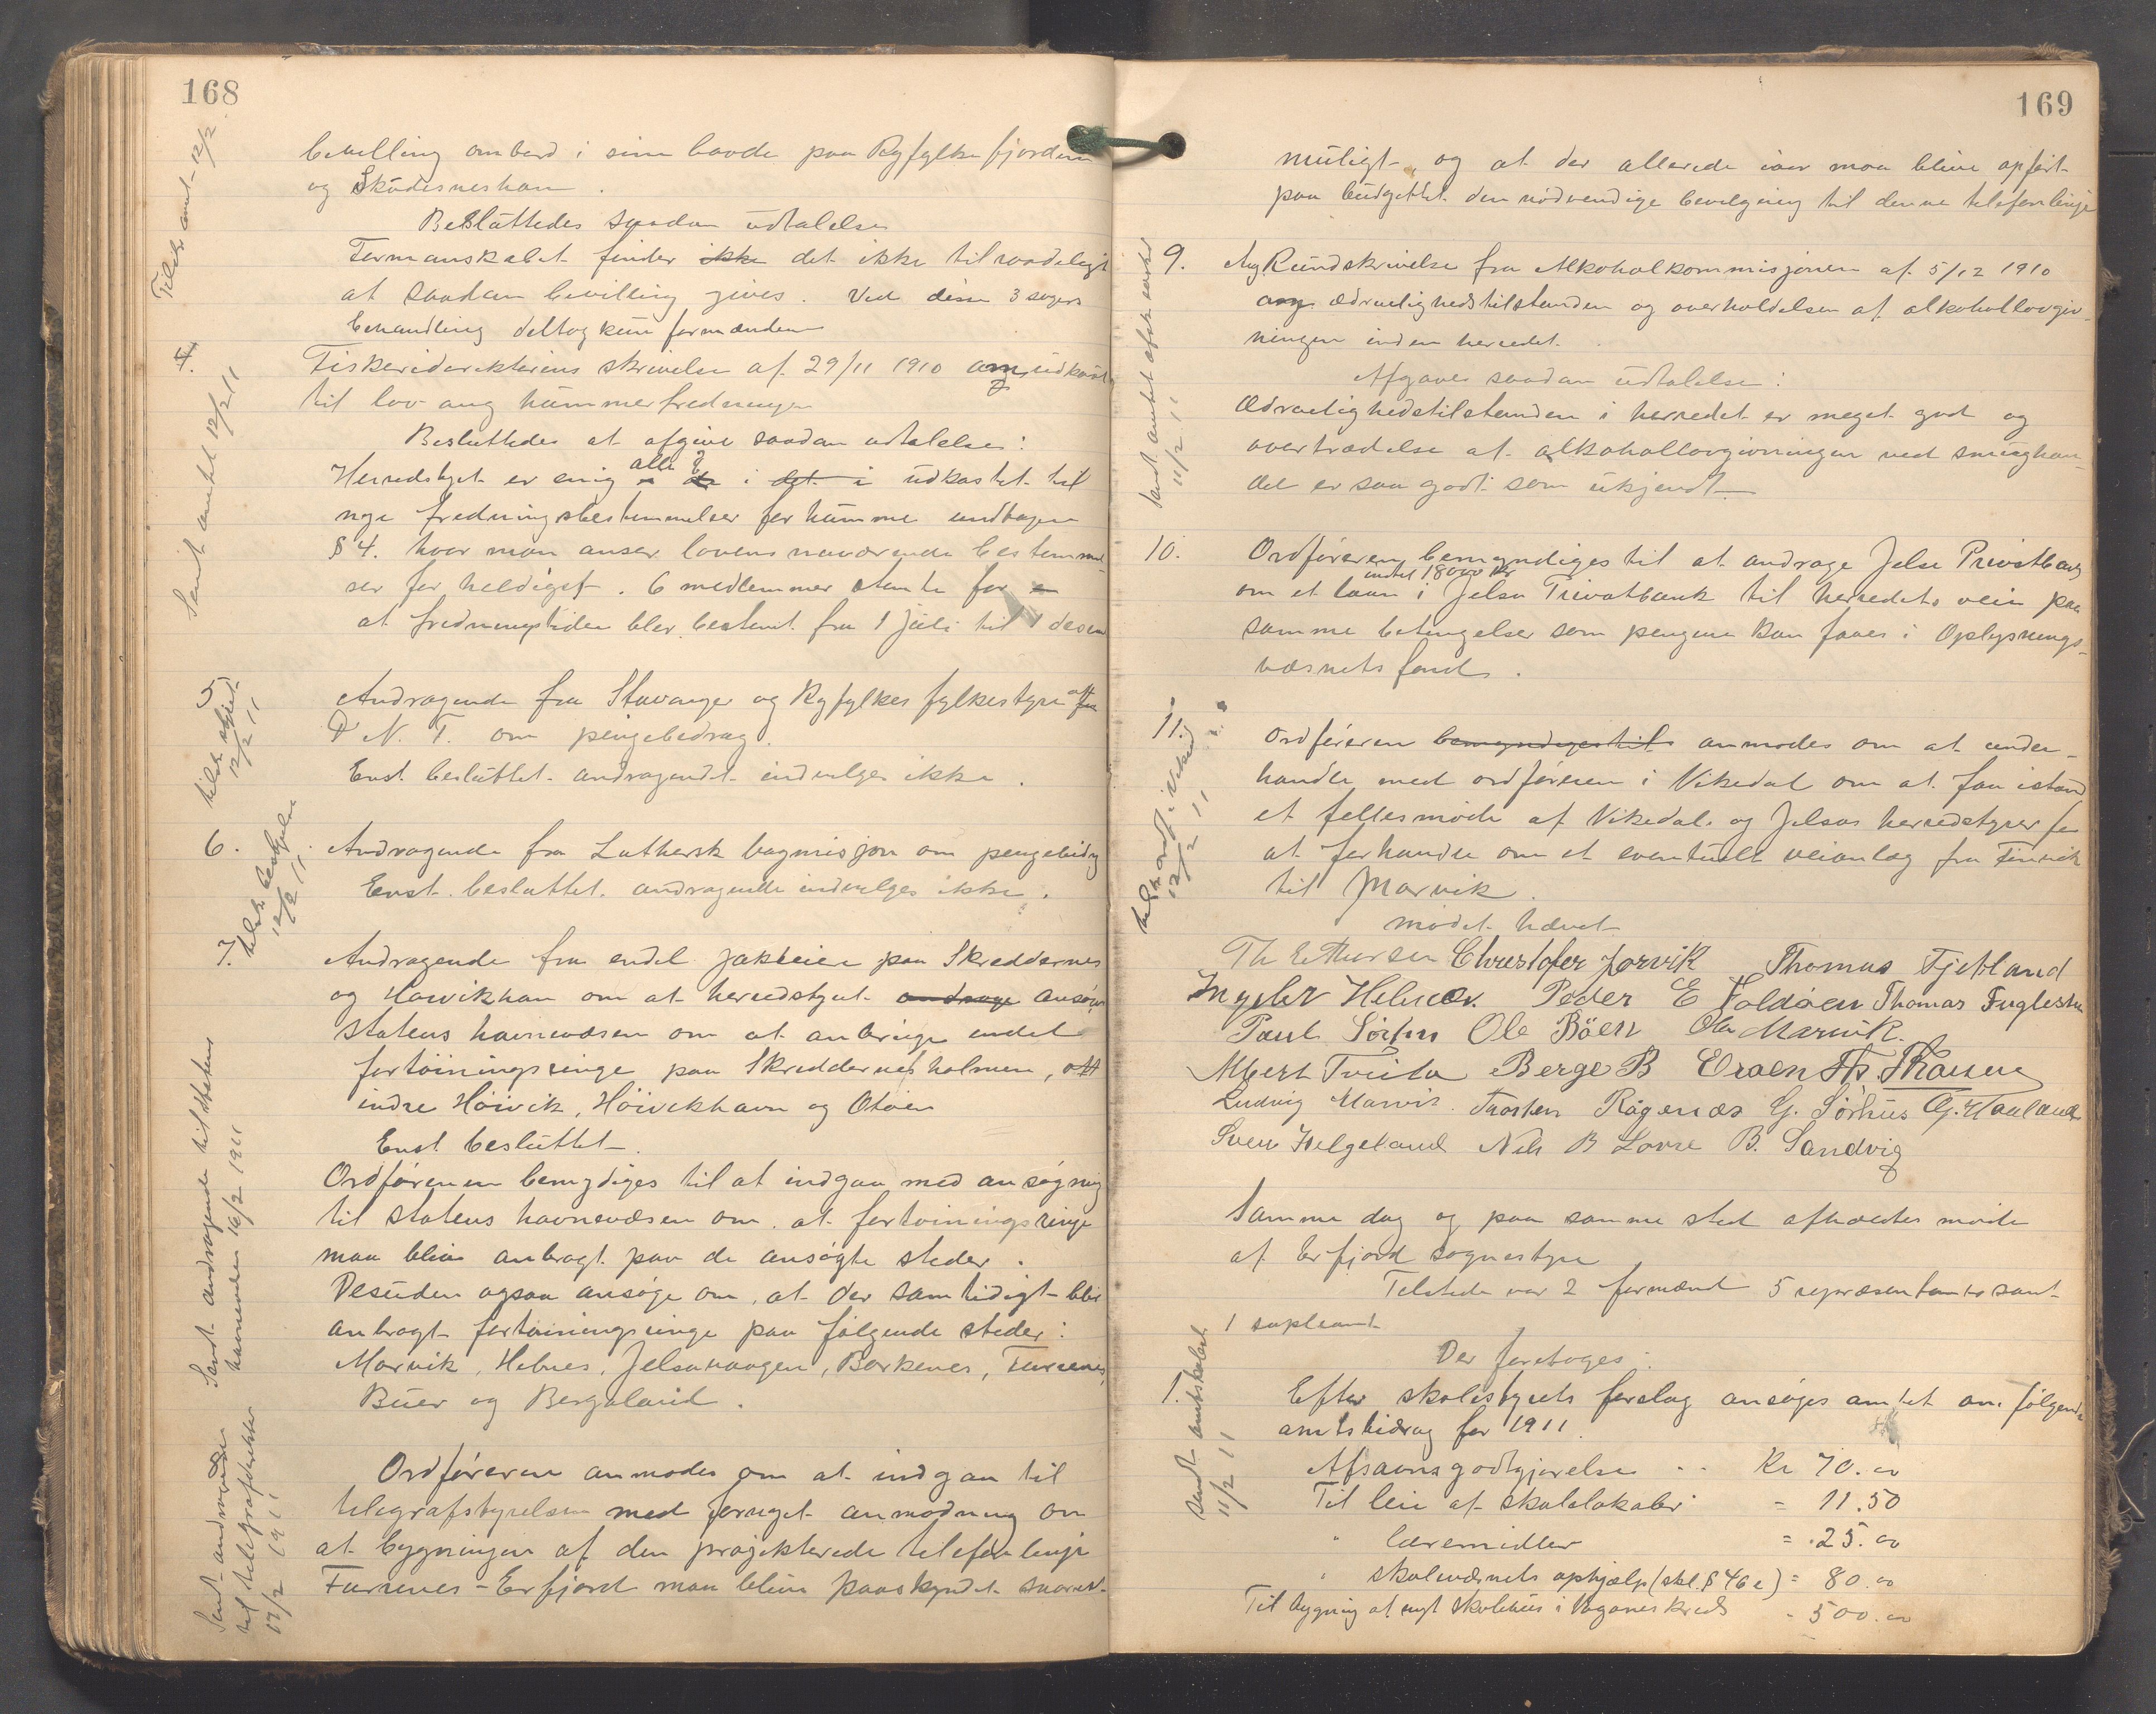 168
bevilling ombord i sine baade paa Ryfylke fjordene
og Skudesneshavn.
Besluttedes saadan udtalelse
Formanskabet finder ikke det ikke tilraadeligt
at saadan bevilling gives. Ved disse 3 sagers
behandling deltog kun formændene
Tilsk. amt. 12/2.
4.
Fiskeridirektørens skrivelse af 29/11 1910 ang. udkast
til lov ang hummerfredningen
Besluttedes at afgive saadan udtalelse:
Herredstyret er enig alle § i det i udkastet til
nye fredningsbestemmelser for humme undtagen
§ 4. hvor man anser lovens nuværende bestemmel
ser for heldigst. 6 medlemmer stemte for
at fredningstiden blev bestemt fra 1 juli til 1 desem
Sendt amtet 12/2 11
5
Andragende fra Stavanger og Ryfylkes fylkestyre aff
D N. T. om pengebedrag.
Enst besluttet andragendet indvilges ikke.
12/2 11
6.
Andragende fra Luthersk bogmisjon om pengebidrag
Enst. besluttet. andragende indvilges ikke.
12/2 11
7.
Andragende fra endel jakteiere paa Skreddernes
og Høivikhavn om at herredstyret andrage ansøger
statens havnevæsen om at anbringe endel
fortøiningsringe paa Skreddernesholmen, ått
indre Høivik, Høivikhavn og Otøien
Enst besluttet.
Ordføreren bemydiges til at indgaa med ansøgning
til statens havnevæsen om at fortøiningsringe
maa blive anbragt paa de ansøgte steder.
Desuden ogsaa ansøge om, at der samtidigt blir
anbragt fortøiningsringe paa følgende steder:
Marvik, Hebnes, Jelsavaagen, Barkenes, Furrenes,
Buer og Bergeland.
Sendt andragende til statens
havnevesen 16/2 1911
8
Ordføreren anmodes om at indgaa til
telegrafstyrelsen med fornyet anmodning om
at bygningen af den projekterede telefonlinje
Furrenes - Erfjord maa blive paaskyndet snarest
Sendt andragende
til telegrafdirektør
17/2 1911
169
muligt, og at der allerede iaar maa blive opført
paa budgettet den nødvendige bevilgning til denne telefonlinje
9.
Ang Rundskrivelse fra Alkoholkommisjonen af 5/12 1910
ang. ædruelighedstilstanden og overholdelsen af alkohollovgiv-
ningen inden herredet.
Afgaves saadan udtalelse:
Ædruelighedstilstanden i herredet er meget god og
overtrædelse af alkohollovgivningen ved smughan-
del er saa godt som ukjendt.
11/2 11
10.
Ordføreren bemyndiges til at andrage Jelse Privatbank
indtil 18000 kr
om et laan i Jelsa Privatbank til herredets vein paa
samme betingelser som pengene kan faaes i Oplysnings-
væsnets fond.
11.
Ordføreren bemyndiges til anmodes om at under-
handle med ordføreren i Vikedal om at faa istand
et fellesmøde af Vikedals og Jelsas herredstyrer for
at forhandle om et eventuelt veianlæg fra
til Marvik.
12/2 11
mødet hævet
Christofer Jørvik Thomas Fjetland
Peder E Foldøen Thomas Fuglestein
Paul Sørhus Ole Bøen Ole Marvik.
Albert Tveita Berge B Eraen
Ludvig Marvik. Torsten Ragenæs G. Sørhus G. Haaland
Sven Helgeland Nils B Lovra B. Sandvig
Samme dag og paa samme sted afholdtes møde
af Erfjord sognestyre
Tilstede var 2 formænd 5 repræsentanter samt
1 supleant
Der foretoges:
1.
Efter skolestyrets forslag ansøges amtet om følgende
amtsbidrag for 1911.
Afsavnsgodtgjørelse - - Kr 70.00
Til leie af skolelokaler = 11.50
" læremidler = 25.00
" skolevæsnets ophjælp (skl. § 46 e) = 80.00
Til bygning af nyt skolehus i Vaganes kreds - 500.00
Sendt amtskolest.
11/2 11